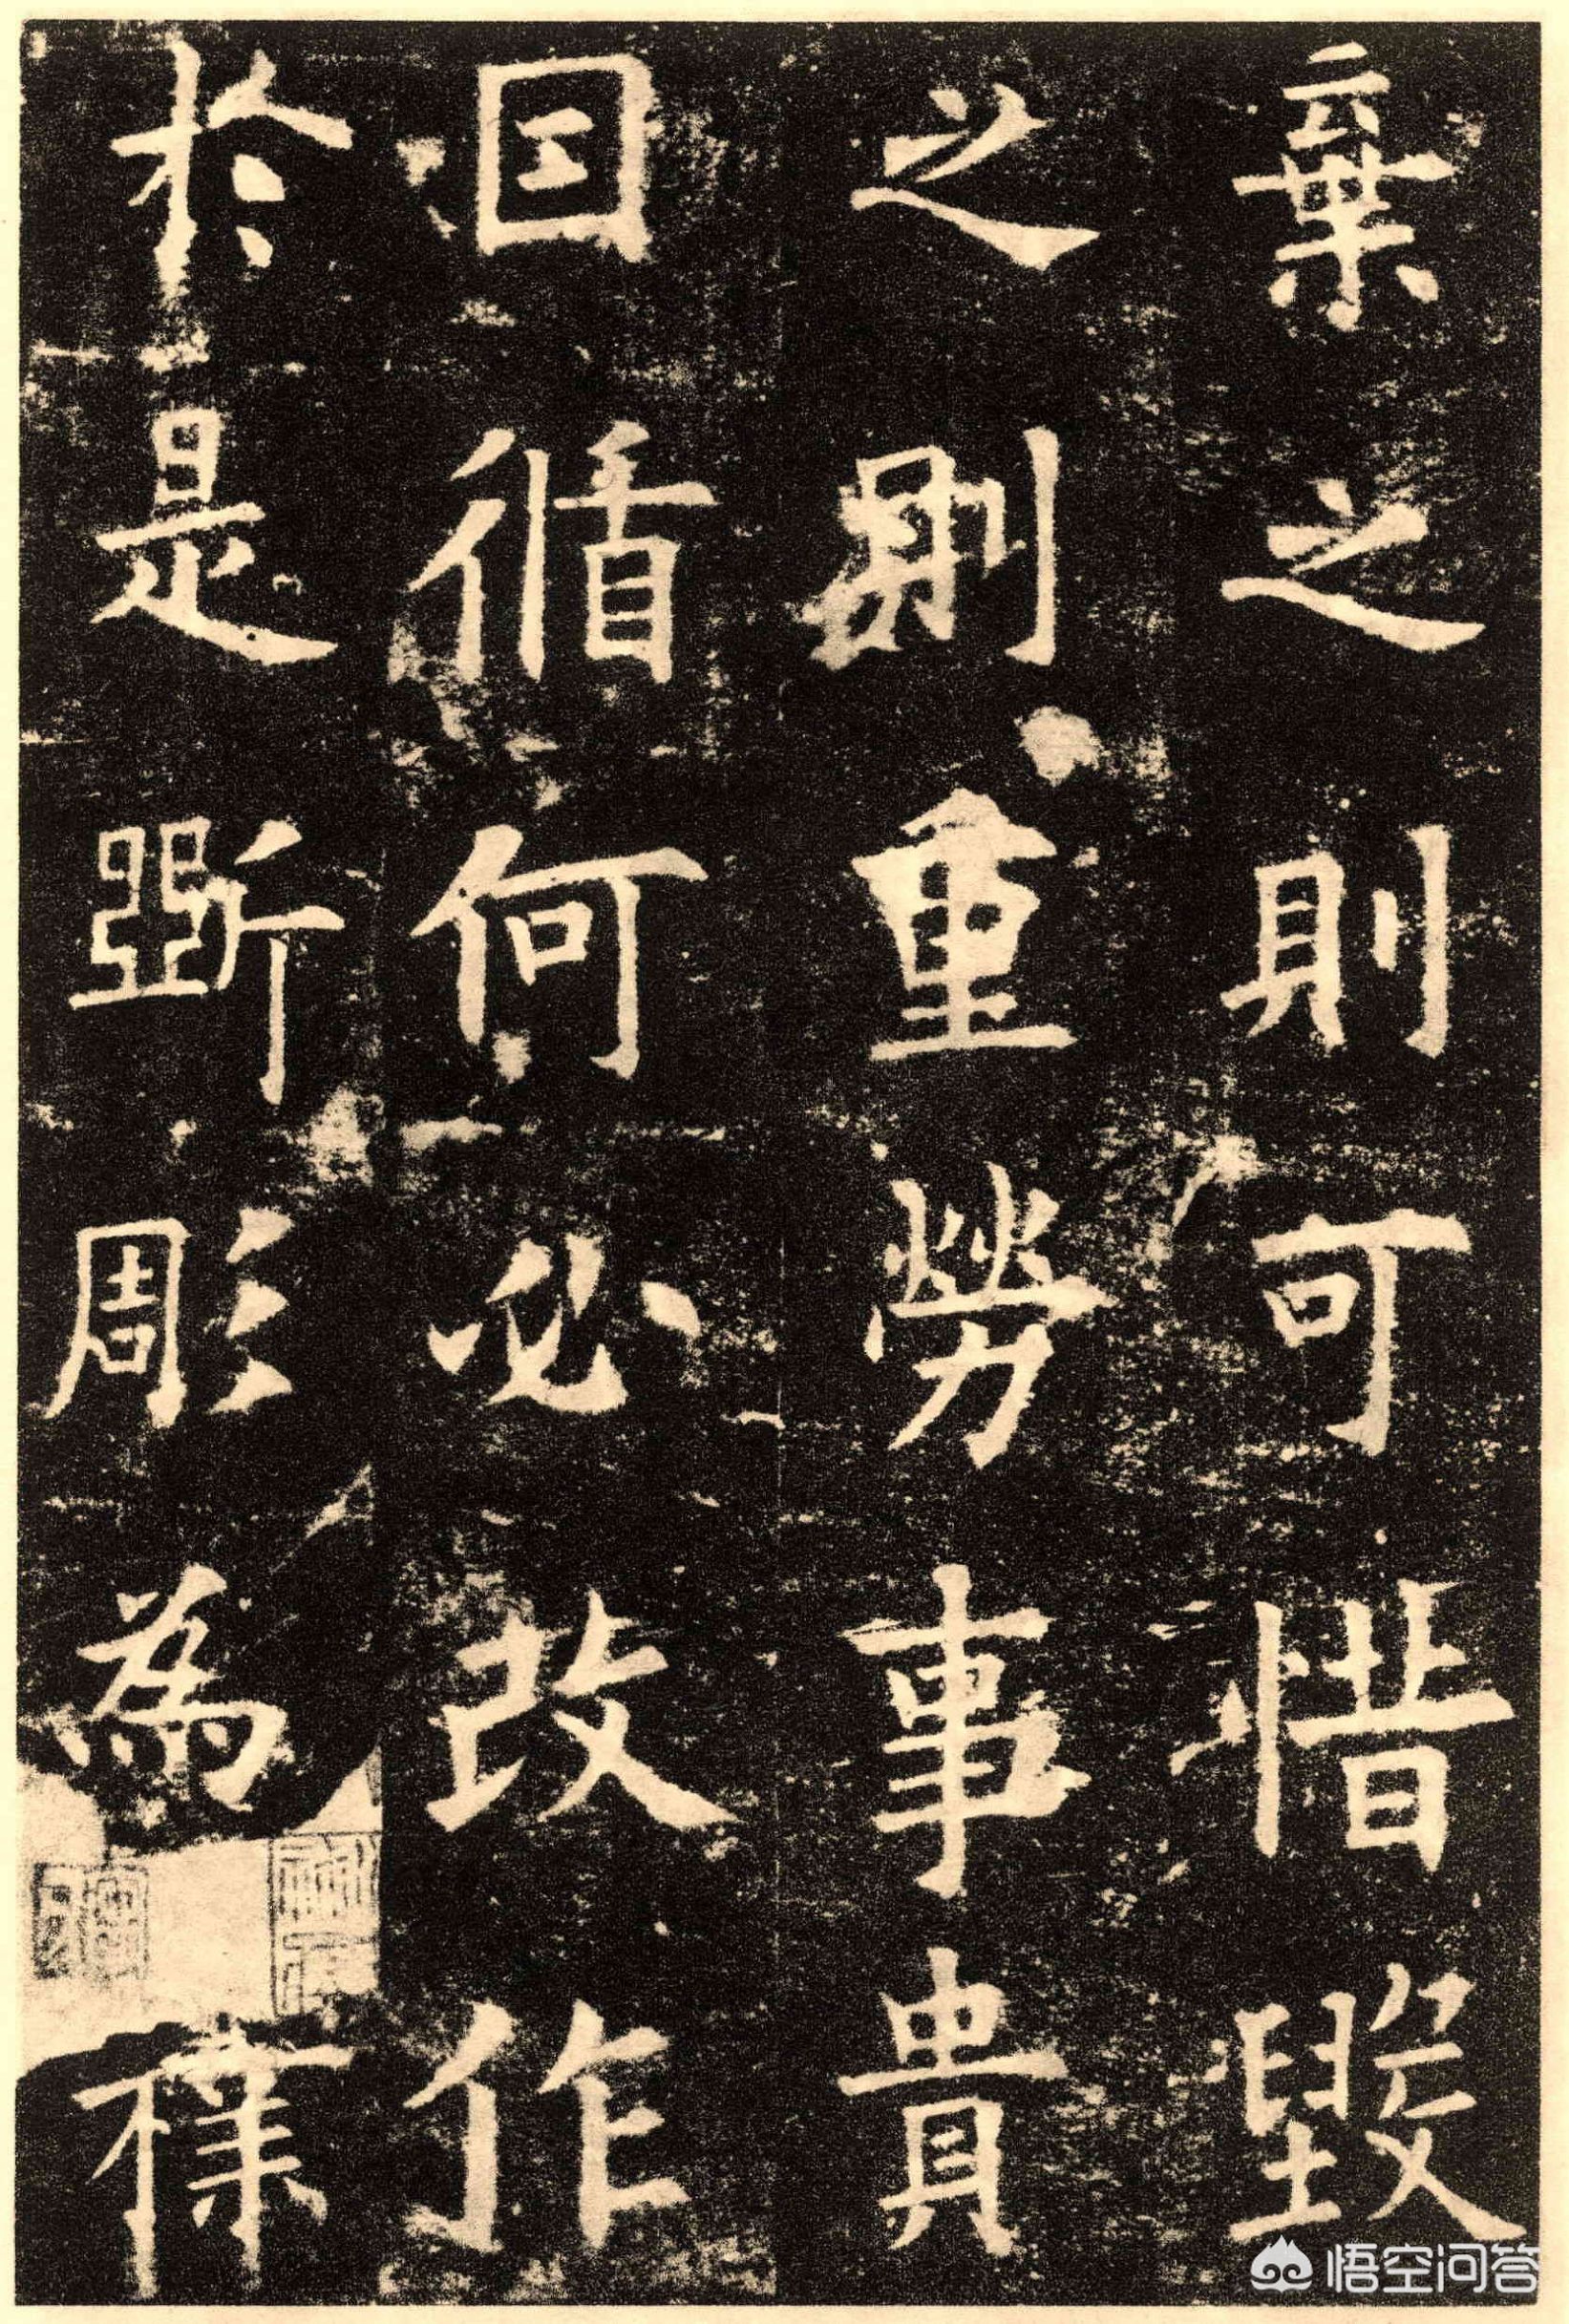 棄之則可惜毀
之則重勞事貴
因循何必改作
於是斲彫為樸
悟空问答